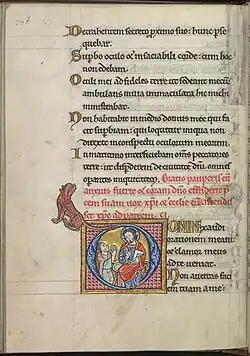 Detrahentem secreto proximo suo: hunc perse
quebar.
Supbo oculo et insaciabili corde: cum hoc
non edebam.
Oculi mei ad fideles terre ut sedeant mecum:
ambulans in via immaculata hic michi
ministrabat.
Non habitabit in medio domus mee qui fa
cit supbiam: qui loquitur iniqua non
direxit in conspectu oculorum meorum.
In matutino interficiebam omnes peccatores
terre: ut disperderem de civitate dni omnes
operantes iniquitatem. Oratio pauperis cu
anxius fuerit et coram dno effuderit
cem suam
DOMINE exaudi
orationem meam
et clamor meus
ad te veniat.
Non avertas faci
em tuam a me: